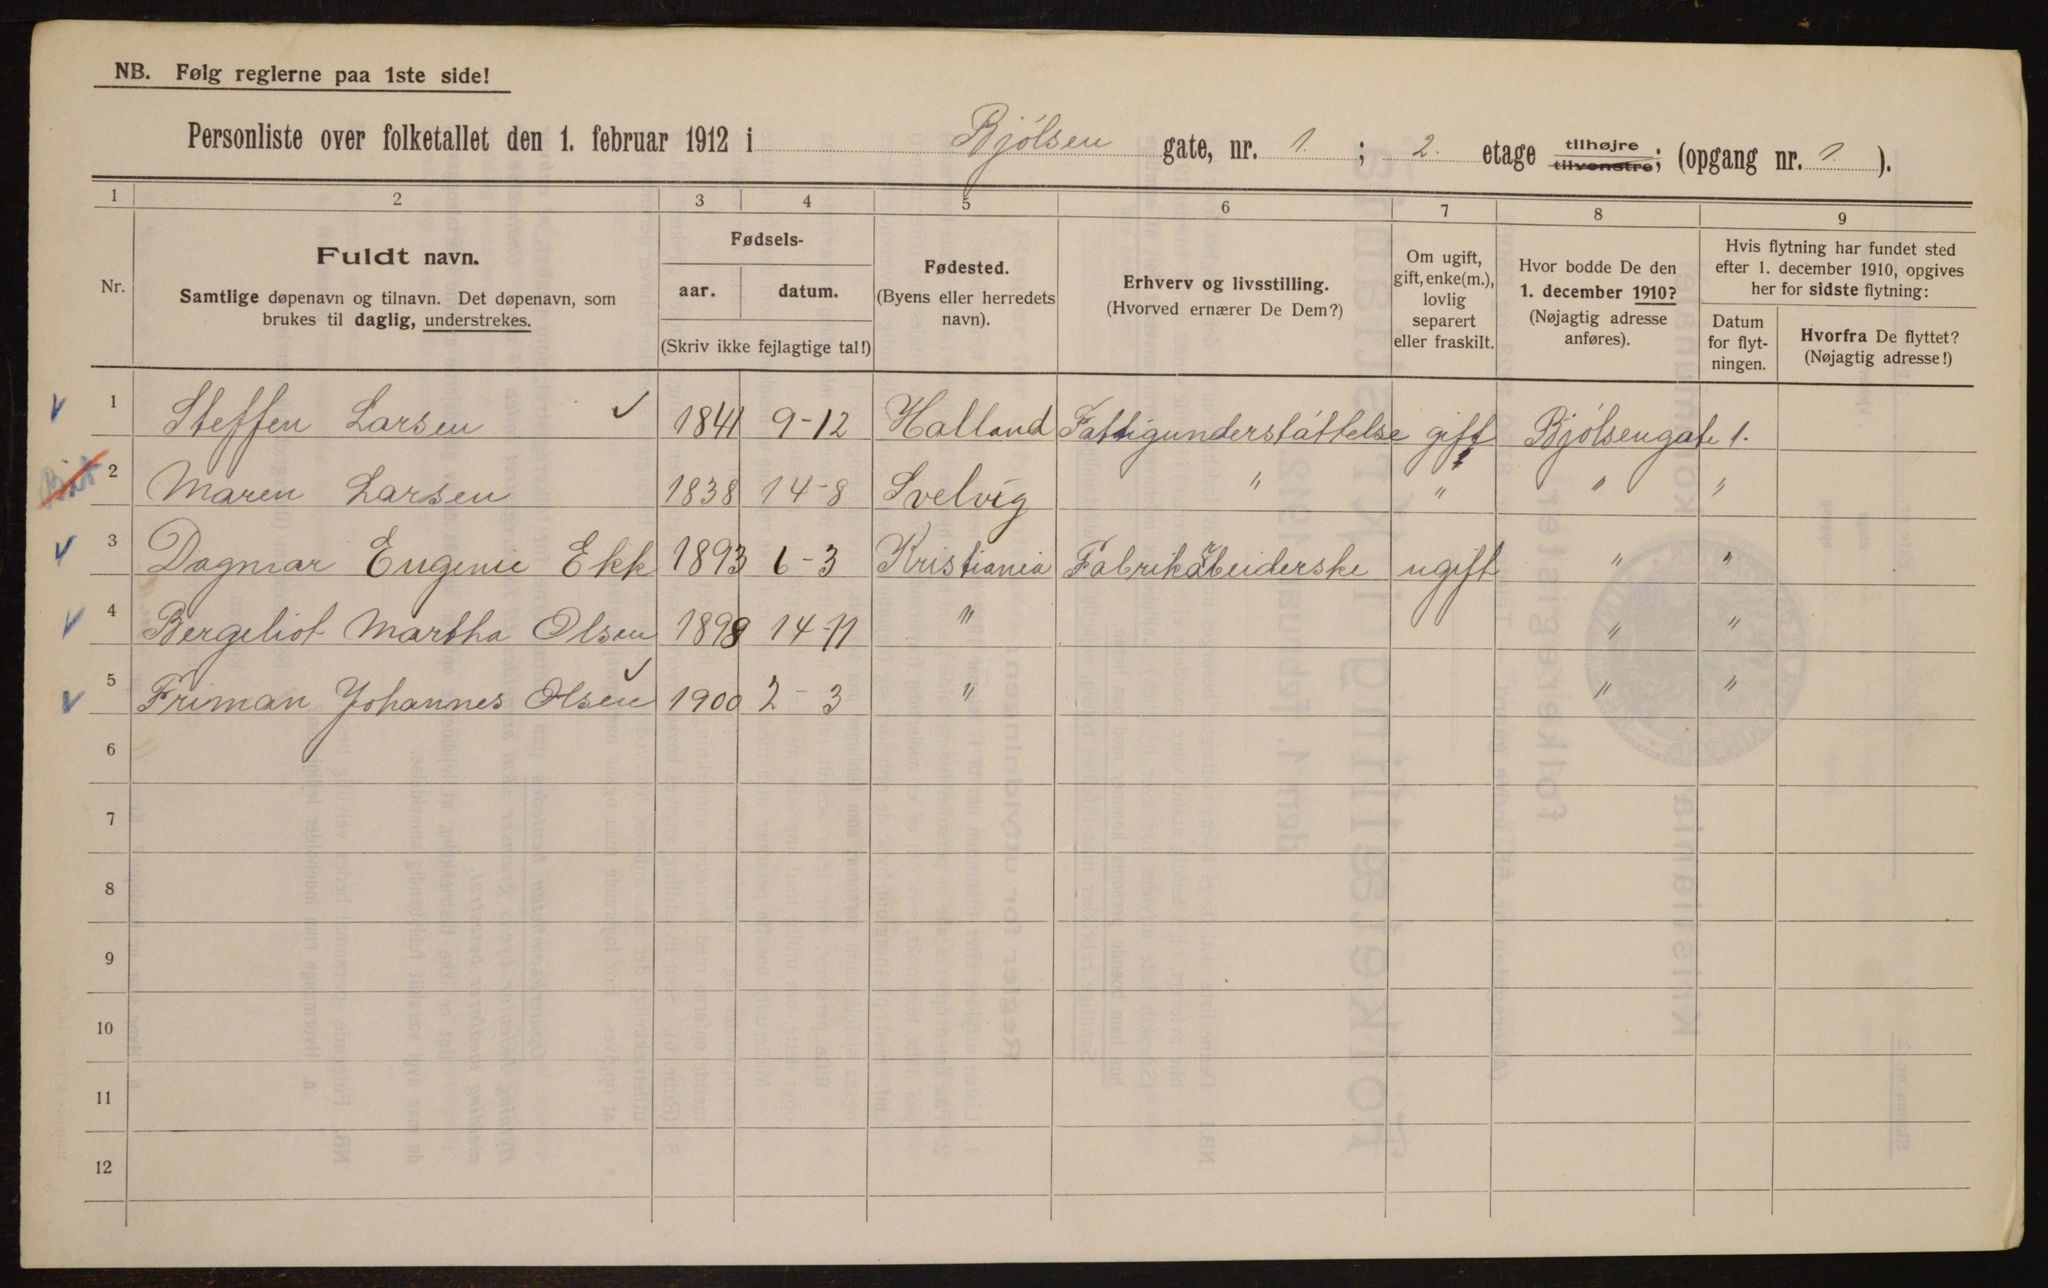 NB. Følg reglerne paa 1ste side!
Personliste over folketallet den 1. februar 1912 i Bjølsen gate, nr. 1. ; 2. etage tilhøjre tilvenstre; (opgang nr. 1. ).
1 2 3 4 5 6 7 8 9
Nr.
Fuldt navn.
Samtlige døpenavn og tilnavn. Det døpenavn, som
brukes til daglig, understrekes.
Fødsels-
aar. datum.
(Skriv ikke fejlagtige tal!)
Fødested.
(Byens eller herredets
navn).
Erhverv og livsstilling.
(Hvorved ernærer De Dem?)
Om ugift,
gift, enke(m.),
lovlig
separert
eller fraskilt.
Hvor bodde De den
1. december 1910?
(Nøjagtig adresse
anføres).
Hvis flytning har fundet sted
efter 1. december 1910, opgives
her for sidste flytning:
Datum
for flyt-
ningen.
Hvorfra De flyttet?
(Nøjagtig adresse!)
1 Steffen Larsen 1841 9-12 Halland Fattigunderstáttelse gift Bjólsengate 1.
2 Maren Larsen 1838 14-8 Svelvig " " " "
3 Dagmar Eugenie Ekk 1893 6-3 Kristiania Fabrikarbeiderske ugift " "
4 Bergeliot Martha Olsen 1898 14-11 " " "
5 Friman Johannes Olsen 1900 2-3 " " "
6
7
8
9
10
11
12